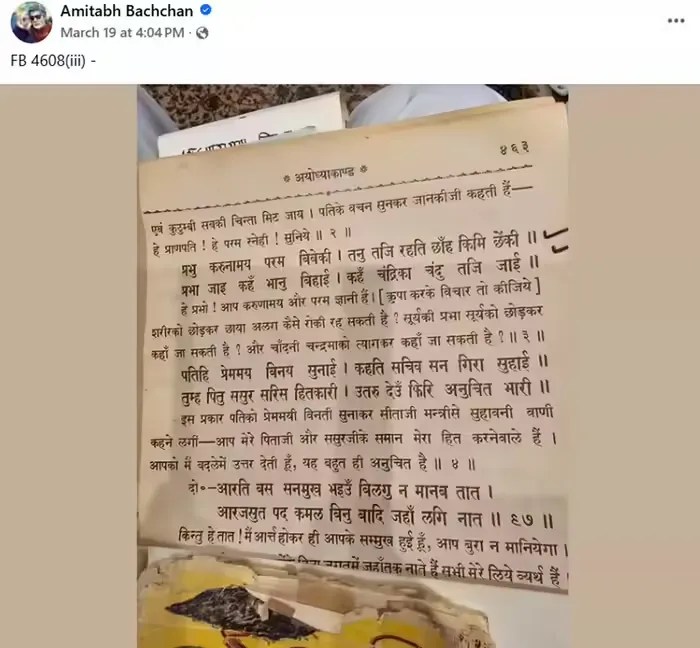 Amitabh Bachchan
March 19 at 4:04 PM ·
FB 4608(iii) -
४६३
अयोध्याकाण्ड
एवं कुटुम्बी सबकी चिन्ता मिट जाय । पतिके वचन सुनकर जानकीजी कहती हैं—
हे प्राणपति ! हे परम स्नेही ! सुनिये ॥ २ ॥
प्रभु करुनामय परम बिबेकी । तनु तजि रहति छाँह किमि छेंकी ॥
प्रभा जाइ कहँ भानु बिहाई । कहँ चंद्रिका चंदु तजि जाई ॥
हे प्रभो ! आप करुणामय और परम ज्ञानी हैं । [ कृपा करके विचार तो कीजिये ]
शरीरको छोड़कर छाया अलग कैसे रोकी रह सकती है ? सूर्यकी प्रभा सूर्यको छोड़कर
कहाँ जा सकती है ? और चाँदनी चन्द्रमाको त्यागकर कहाँ जा सकती है ? ॥ ३ ॥
पतिहि प्रेममय बिनय सुनाई । कहति सचिव सन गिरा सुहाई ॥
तुम्ह पितु ससुर सरिस हितकारी । उतरु देउँ फिरि अनुचित भारी ॥
इस प्रकार पतिको प्रेममयी विनती सुनाकर सीताजी मन्त्रीसे सुहावनी वाणी
कहने लगीं—आप मेरे पिताजी और ससुरजीके समान मेरा हित करनेवाले हैं ।
आपको मैं बदलेमें उत्तर देती हूँ, यह बहुत ही अनुचित है ॥ ४ ॥
दो॰—आरति बस सनमुख भइउँ बिलगु न मानब तात ।
आरजसुत पद कमल बिनु बादि जहाँ लगि नात ॥ ९७ ॥
किन्तु हे तात ! मैं आर्त्त होकर ही आपके सम्मुख हुई हूँ, आप बुरा न मानियेगा ।
जगतमें जहाँतक नाते हैं सभी मेरे लिये व्यर्थ हैं